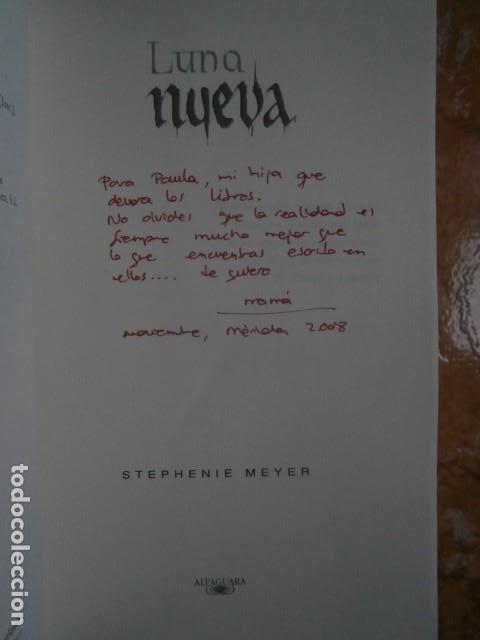 Luna
nueva
Para Paula, mi hija que
devora los libros.
No olvides que la realidad es
siempre mucho mejor que
lo que encuentras escrito en
ellos.... te quiero
mamá
noviembre, Mérida 2008
STEPHENIE MEYER
ALFAGUARA
todocoleccion